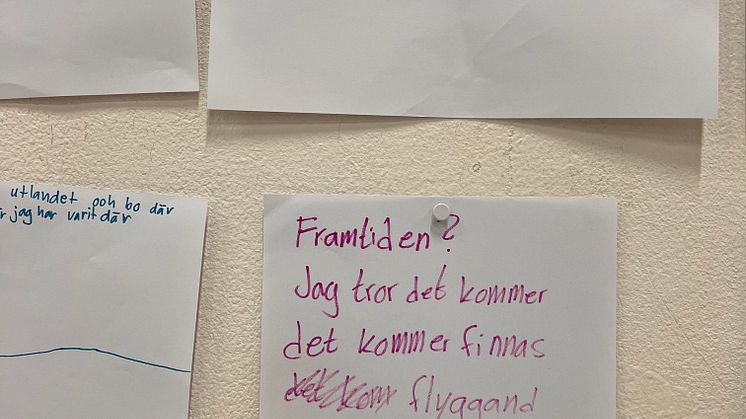 utlandet och bo där
jag har varit där
Framtiden?
Jag tror det kommer
det kommer finnas
flyggand